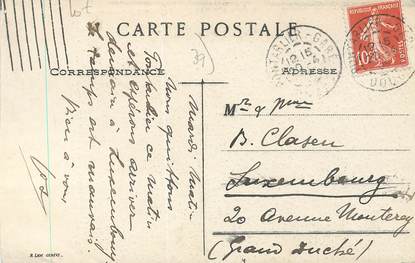 CARTE POSTALE
CORRESPONDANCE
ADRESSE
39
Mardi matin
nous quittons
Pontarlier ce matin
et espérons arriver
demain à Luxembourg
le temps est mauvais.
Bien à vous
PONTARLIER-GARE
DOUBS
10
Mr & Mme
B. Clasen
Luxembourg
20 Avenue Monterey
(Grand Duché)